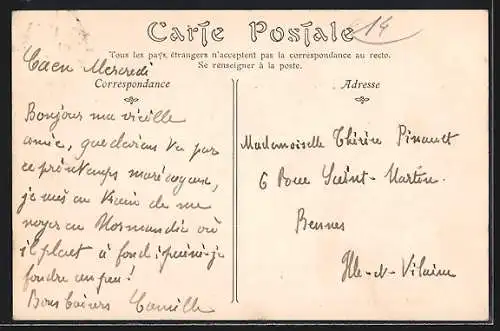 Carte Postale
14
Tous les pays étrangers n'acceptent pas la correspondance au recto.
Se renseigner à la poste.
Correspondance
Adresse
Caen Mercredi
Bonjour ma vieille
amie, que deviens tu par
ce printemps marécageux,
je suis en train de me
noyer en Normandie où
il pleut à fond; puissé-je
fondre un peu!
Bons baisers Camille
Mademoiselle Thérèse
6 Rue Saint-Martin
Rennes
Ille-et-Vilaine